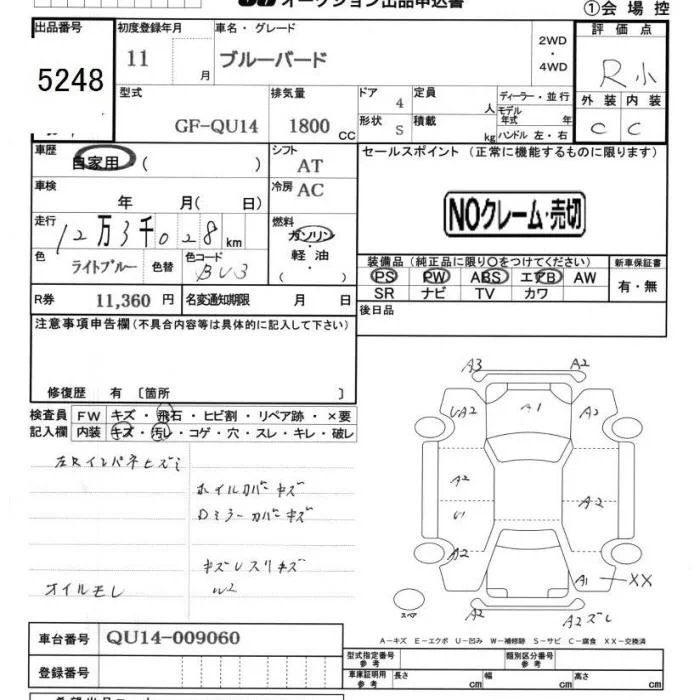 オークション出品申込書
①会 場 控
出品番号
5248
初度登録年月
11
月
車名・グレード
ブルーバード
2WD
・
4WD
評 価 点
R小
外 装 内 装
C C
型式
GF-QU14
排気量
1800 CC
ドア
4
定員
人
ディーラー・並行
モデル
年式 年
形状
S
積載
kg
ハンドル 左・右
車歴
自家用 ( )
シフト
AT
セールスポイント (正常に機能するものに限ります)
車検
年 月( 日)
冷房
AC
NOクレーム・売切
走行
12万3千028km
燃料
ガソリン
・
軽油
( )
色
ライトブルー
色替
色コード
BV3
装備品(純正品に限り○をつけてください)
PS PW ABS エアB AW
SR ナビ TV カワ
新車保証書
有・無
R券
11,360 円
名変通知期限 月 日
後日品
注意事項申告欄(不具合内容等は具体的に記入して下さい)
修復歴 有 〔箇所 〕
検査員
記入欄
FW キズ・飛石・ヒビ割・リペア跡・×要
内装 キズ・汚レ・コゲ・穴・スレ・キレ・破レ
左Rインパネヒズミ
ホイルカバーキズ
Dミラーカバーキズ
キズレスリキズ
オイルモレ
W2
A3
A2
UA2
A1
A2
A2
U1
A2
A2
A1 XX
スペ
A2
A2ズレ
A-キズ E-エクボ U-凹み W-補修跡 S-サビ C-腐食 XX-交換済
車台番号
QU14-009060
登録番号
型式指定番号
参 考
類別区分番号
参 考
車庫証明用
参 考
長さ cm 幅 cm 高さ cm